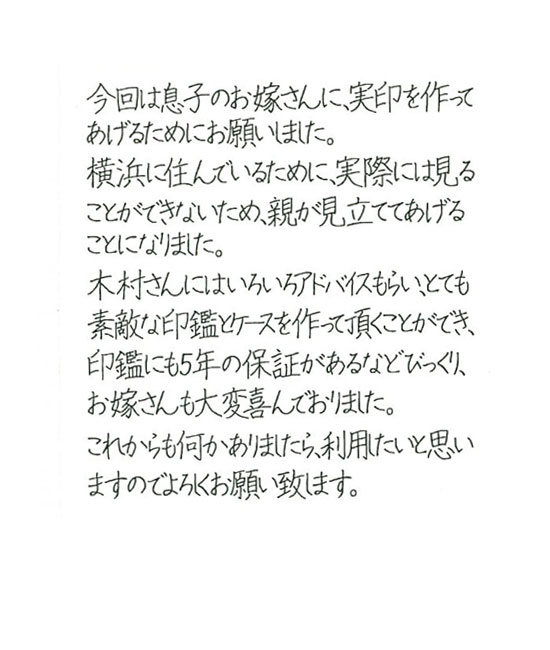 今回は息子のお嫁さんに、実印を作って
あげるためにお願いしました。
横浜に住んでいるために、実際には見る
ことができないため、親が見立ててあげる
ことになりました。
木村さんにはいろいろアドバイスもらい、とても
素敵な印鑑とケースを作って頂くことができ、
印鑑にも5年の保証があるなどびっくり、
お嫁さんも大変喜んでおりました。
これからも何かありましたら、利用したいと思い
ますのでよろしくお願い致します。